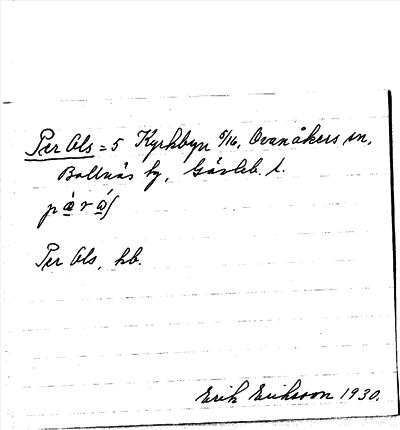 Per Ols = 5 Kyrkbyn 5/16, Ovanåkers sn,
Bollnäs tg, Gävleb. l.
Per Ols, hb.
Erik Eriksson 1930.